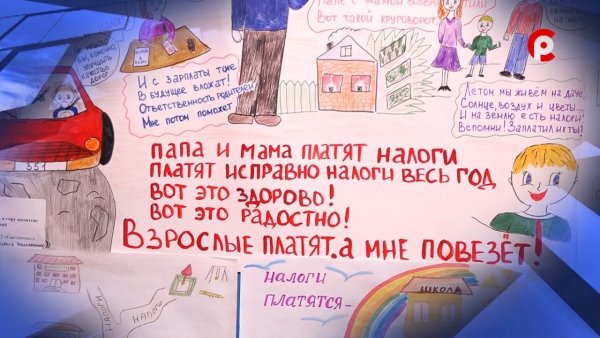 Папе с мамой возвратили
Вот такой круговорот
конечно,
улучшить
качество
дорог!
И с зарплаты тоже
В будущее вложат!
Ответственность родителей
Мне потом поможет
Летом мы живём на даче
Солнце, воздух и цветы...
И на землю есть налоги!
Вспомни! Заплатил их ты?
351
ПАПА И МАМА ПЛАТЯТ НАЛОГИ
ПЛАТЯТ ИСПРАВНО НАЛОГИ ВЕСЬ ГОД
ВОТ ЭТО ЗДОРОВО!
ВОТ ЭТО РАДОСТНО!
ВЗРОСЛЫЕ ПЛАТЯТ.А МНЕ ПОВЕЗЁТ!
НАЛОГИ
НАЛОГИ
НАЛОГИ
ПЛАТЯТСЯ-
ШКОЛА
Р